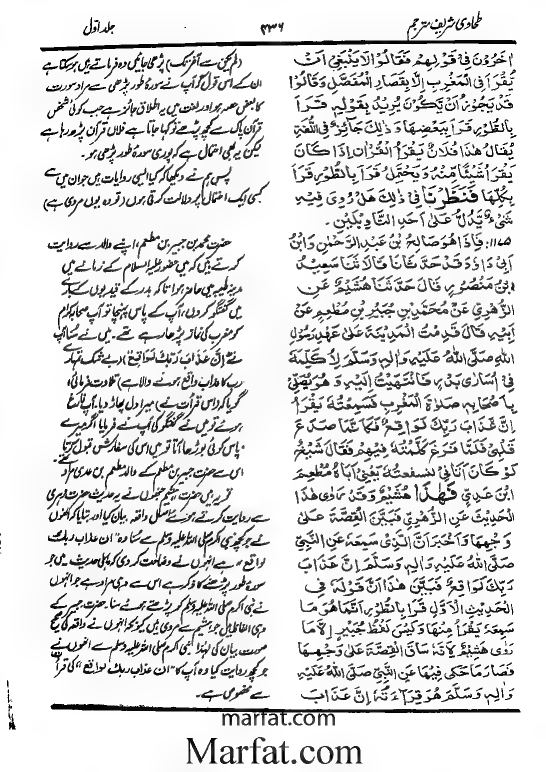 طحاوی شریف مترجم
۲۳۶
جلد اول
اٰخَرُوْنَ فِيْ قَوْلِهِمْ فَقَالُوْا لَا يَنْبَغِيْ اَنْ
يُّقْرَأَ فِي الْمَغْرِبِ اِلَّا بِقِصَارِ الْمُفَصَّلِ وَقَالُوْا
قَدْ يَجُوْزُ اَنْ يَّكُوْنَ يُرِيْدُ بِقَوْلِهٖ قَرَأَ
بِالطُّوْرِ قَرَأَ بِبَعْضِهَا وَذٰلِكَ جَائِزٌ فِي اللُّغَةِ
يُقَالُ هٰذَا فُلَانٌ يَقْرَأُ الْقُرْاٰنَ اِذَا كَانَ
يَقْرَأُ شَيْئًا مِّنْهُ وَيَحْتَمِلُ قَرَأَ بِالطُّوْرِ قَرَأَ
بِكُلِّهَا فَنَظَرْنَا فِيْ ذٰلِكَ هَلْ رُوِيَ فِيْهِ
شَيْءٌ يَدُلُّ عَلٰى اَحَدِ التَّاْوِيْلَيْنِ۔
۱۱۷۵: فَاِذَا هُوَ صَالِحُ بْنُ عَبْدِ الرَّحْمٰنِ وَابْنُ
اَبِيْ دَاوٗدَ قَدْ حَدَّثَانَا قَالَا ثَنَا سَعِيْدُ
بْنُ مَنْصُوْرٍ، قَالَ حَدَّثَنَا هُشَيْمٌ عَنِ
الزُّهْرِيِّ عَنْ مُحَمَّدِ بْنِ جُبَيْرِ بْنِ مُطْعِمٍ عَنْ
اَبِيْهِ قَالَ قَدِمْتُ الْمَدِيْنَةَ عَلٰى عَهْدِ رَسُوْلِ
اللّٰهِ صَلَّى اللّٰهُ عَلَيْهِ وَاٰلِهٖ وَسَلَّمَ لِاُكَلِّمَهٗ
فِيْ اُسَارٰى بَدْرٍ، فَانْتَهَيْتُ اِلَيْهِ وَهُوَ يُصَلِّيْ
بِاَصْحَابِهٖ صَلَاةَ الْمَغْرِبِ فَسَمِعْتُهٗ يَقْرَأُ
اِنَّ عَذَابَ رَبِّكَ لَوَاقِعٌ فَكَاَنَّمَا صَدَعَ
قَلْبِيْ فَلَمَّا فَرَغَ كَلَّمْتُهٗ فِيْهِمْ فَقَالَ شَيْخٌ
لَوْ كَانَ اَتَانِيْ لَشَفَّعْتُهٗ يَعْنِيْ اَبَاهُ مُطْعِمَ
ابْنَ عَدِيٍّ فَهٰذَا هُشَيْمٌ وَقَدْ رَوٰى هٰذَا
الْحَدِيْثَ عَنِ الزُّهْرِيِّ فَبَيَّنَ الْقِصَّةَ عَلٰى
وَجْهِهَا وَاَخْبَرَ اَنَّ الَّذِيْ سَمِعَهٗ عَنِ النَّبِيِّ
صَلَّى اللّٰهُ عَلَيْهِ وَاٰلِهٖ وَسَلَّمَ اِنَّ عَذَابَ
رَبِّكَ لَوَاقِعٌ فَبَيَّنَ هٰذَا اَنَّ قَوْلَهٗ فِي
الْحَدِيْثِ الْاَوَّلِ قَرَأَ بِالطُّوْرِ اِنَّمَا هُوَ مَا
سَمِعَهٗ يَقْرَأُ مِنْهَا وَلَيْسَ لَفْظُ جُبَيْرٍ اِلَّا مَا
رَوٰى هُشَيْمٌ لِاَنَّهٗ سَاقَ الْقِصَّةَ عَلٰى وَجْهِهَا
فَصَارَ مَا حَكٰى فِيْهَا عَنِ النَّبِيِّ صَلَّى اللّٰهُ عَلَيْهِ
وَاٰلِهٖ وَسَلَّمَ هُوَ قِرَاءَتُهٗ اِنَّ عَذَابَ
(لم یکن سے آخر تک) پڑھی جائیں وہ فرماتے ہیں ہو سکتا ہے
ان کے اس قول کہ آپ نے سورۂ طور پڑھی سے مراد سورت
کا بعض حصہ ہو اور لغت میں یہ اطلاق جائز ہے جب کوئی شخص
قرآن پاک سے کچھ پڑھے تو کہا جاتا ہے فلاں قرآن پڑھ رہا ہے
لیکن یہ بھی احتمال ہے کہ پوری سورۂ طور پڑھی ہو۔
پس ہم نے دیکھا کہ کیا ایسی روایات ہیں جو ان میں سے
کسی ایک احتمال پر دلالت کرتی ہوں (تو وہ یوں مروی ہے)
حضرت محمد بن جبیر بن مطعم، اپنے والد سے روایت
کرتے ہیں کہ میں حضور علیہ السلام کے زمانے میں
مدینہ طیبہ میں حاضر ہوا تاکہ بدر کے قیدیوں کے بارے
میں گفتگو کروں، آپ کے پاس پہنچا تو آپ صحابہ کرام
کو مغرب کی نماز پڑھا رہے تھے۔ میں نے سنا آپ
نے (اِنَّ عَذَابَ رَبِّكَ لَوَاقِعٌ) (بے شک تمہارے
رب کا عذاب واقع ہونے والا ہے) تلاوت فرمائی،
گویا کہ (اس قرأت نے) میرا دل پھاڑ دیا۔ آپ فارغ
ہوئے تو میں نے گفتگو کی آپ نے فرمایا اگر میرے
پاس کوئی بوڑھا آتا تو میں اس کی سفارش قبول کرتا
اس سے حضرت جبیر بن مطعم کے والد مطعم بن عدی مراد تھے
تو یہ ہیں حضرت ہشیم جنہوں نے یہ حدیث حضرت زہری
سے روایت کرتے ہوئے اصل واقعہ بیان کیا اور بتایا کہ انہوں
نے جو کچھ نبی اکرم صلی اللہ علیہ وسلم سے سنا وہ "ان عذاب ربک
لواقع" ہے انہوں نے وضاحت کر دی کہ پہلی حدیث میں جو
سورۂ طور پڑھنے کا ذکر ہے اس سے وہی مراد ہے جو انہوں
نے نبی اکرم صلی اللہ علیہ وسلم کو پڑھتے ہوئے سنا۔ حضرت جبیر کے
وہی الفاظ ہیں جو ہشیم سے مروی ہیں کیونکہ انہوں نے واقعہ کی صحیح
صورت بیان کی لہٰذا نبی اکرم صلی اللہ علیہ وسلم سے انہوں نے
جو کچھ روایت کیا وہ آپ کا "ان عذاب ربک لواقع" کی قرأت
سے مخصوص ہے۔
marfat.com
Marfat.com